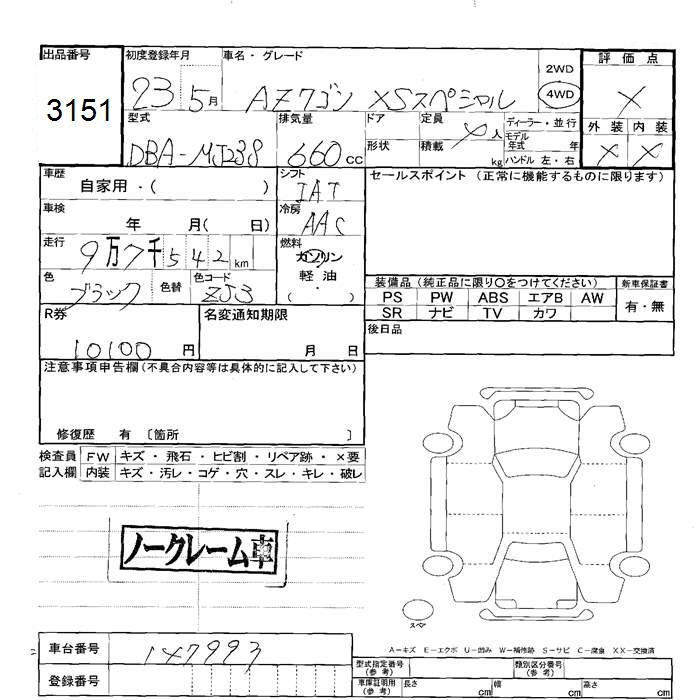 出品番号 初度登録年月 車名・グレード 2WD 評価点
3151 23 5月 AZワゴン XSスペシャル 4WD ×
型式 排気量 ドア 定員 ディーラー・並行 外装 内装
DBA-MJ23S 660cc 形状 積載 人 kg モデル年式 年 × ×
ハンドル 左・右
車歴 シフト セールスポイント (正常に機能するものに限ります)
自家用・( ) IAT
車検 冷房
年 月( 日) AAC
走行 燃料
9万7千542km ガソリン
色 色替 色コード 軽油
ブラック ZJ3 ( ・ )
装備品 (純正品に限り○をつけてください) 新車保証書
PS PW ABS エアB AW 有・無
SR ナビ TV カワ
R券 名変通知期限 後日品
10100円 月 日
注意事項申告欄 (不具合内容等は具体的に記入して下さい)
修復歴 有 〔箇所 〕
検査員 FW キズ・飛石・ヒビ割・リペア跡・×要
記入欄 内装 キズ・汚レ・コゲ・穴・スレ・キレ・破レ
ノークレーム車
スペア
A=キズ E=エクボ U=凹み W=補修跡 S=サビ C=腐食 XX=交換済
車台番号 147993
登録番号
型式指定番号(参考) 類別区分番号(参考)
車庫証明用(参考) 長さ cm 幅 cm 高さ cm